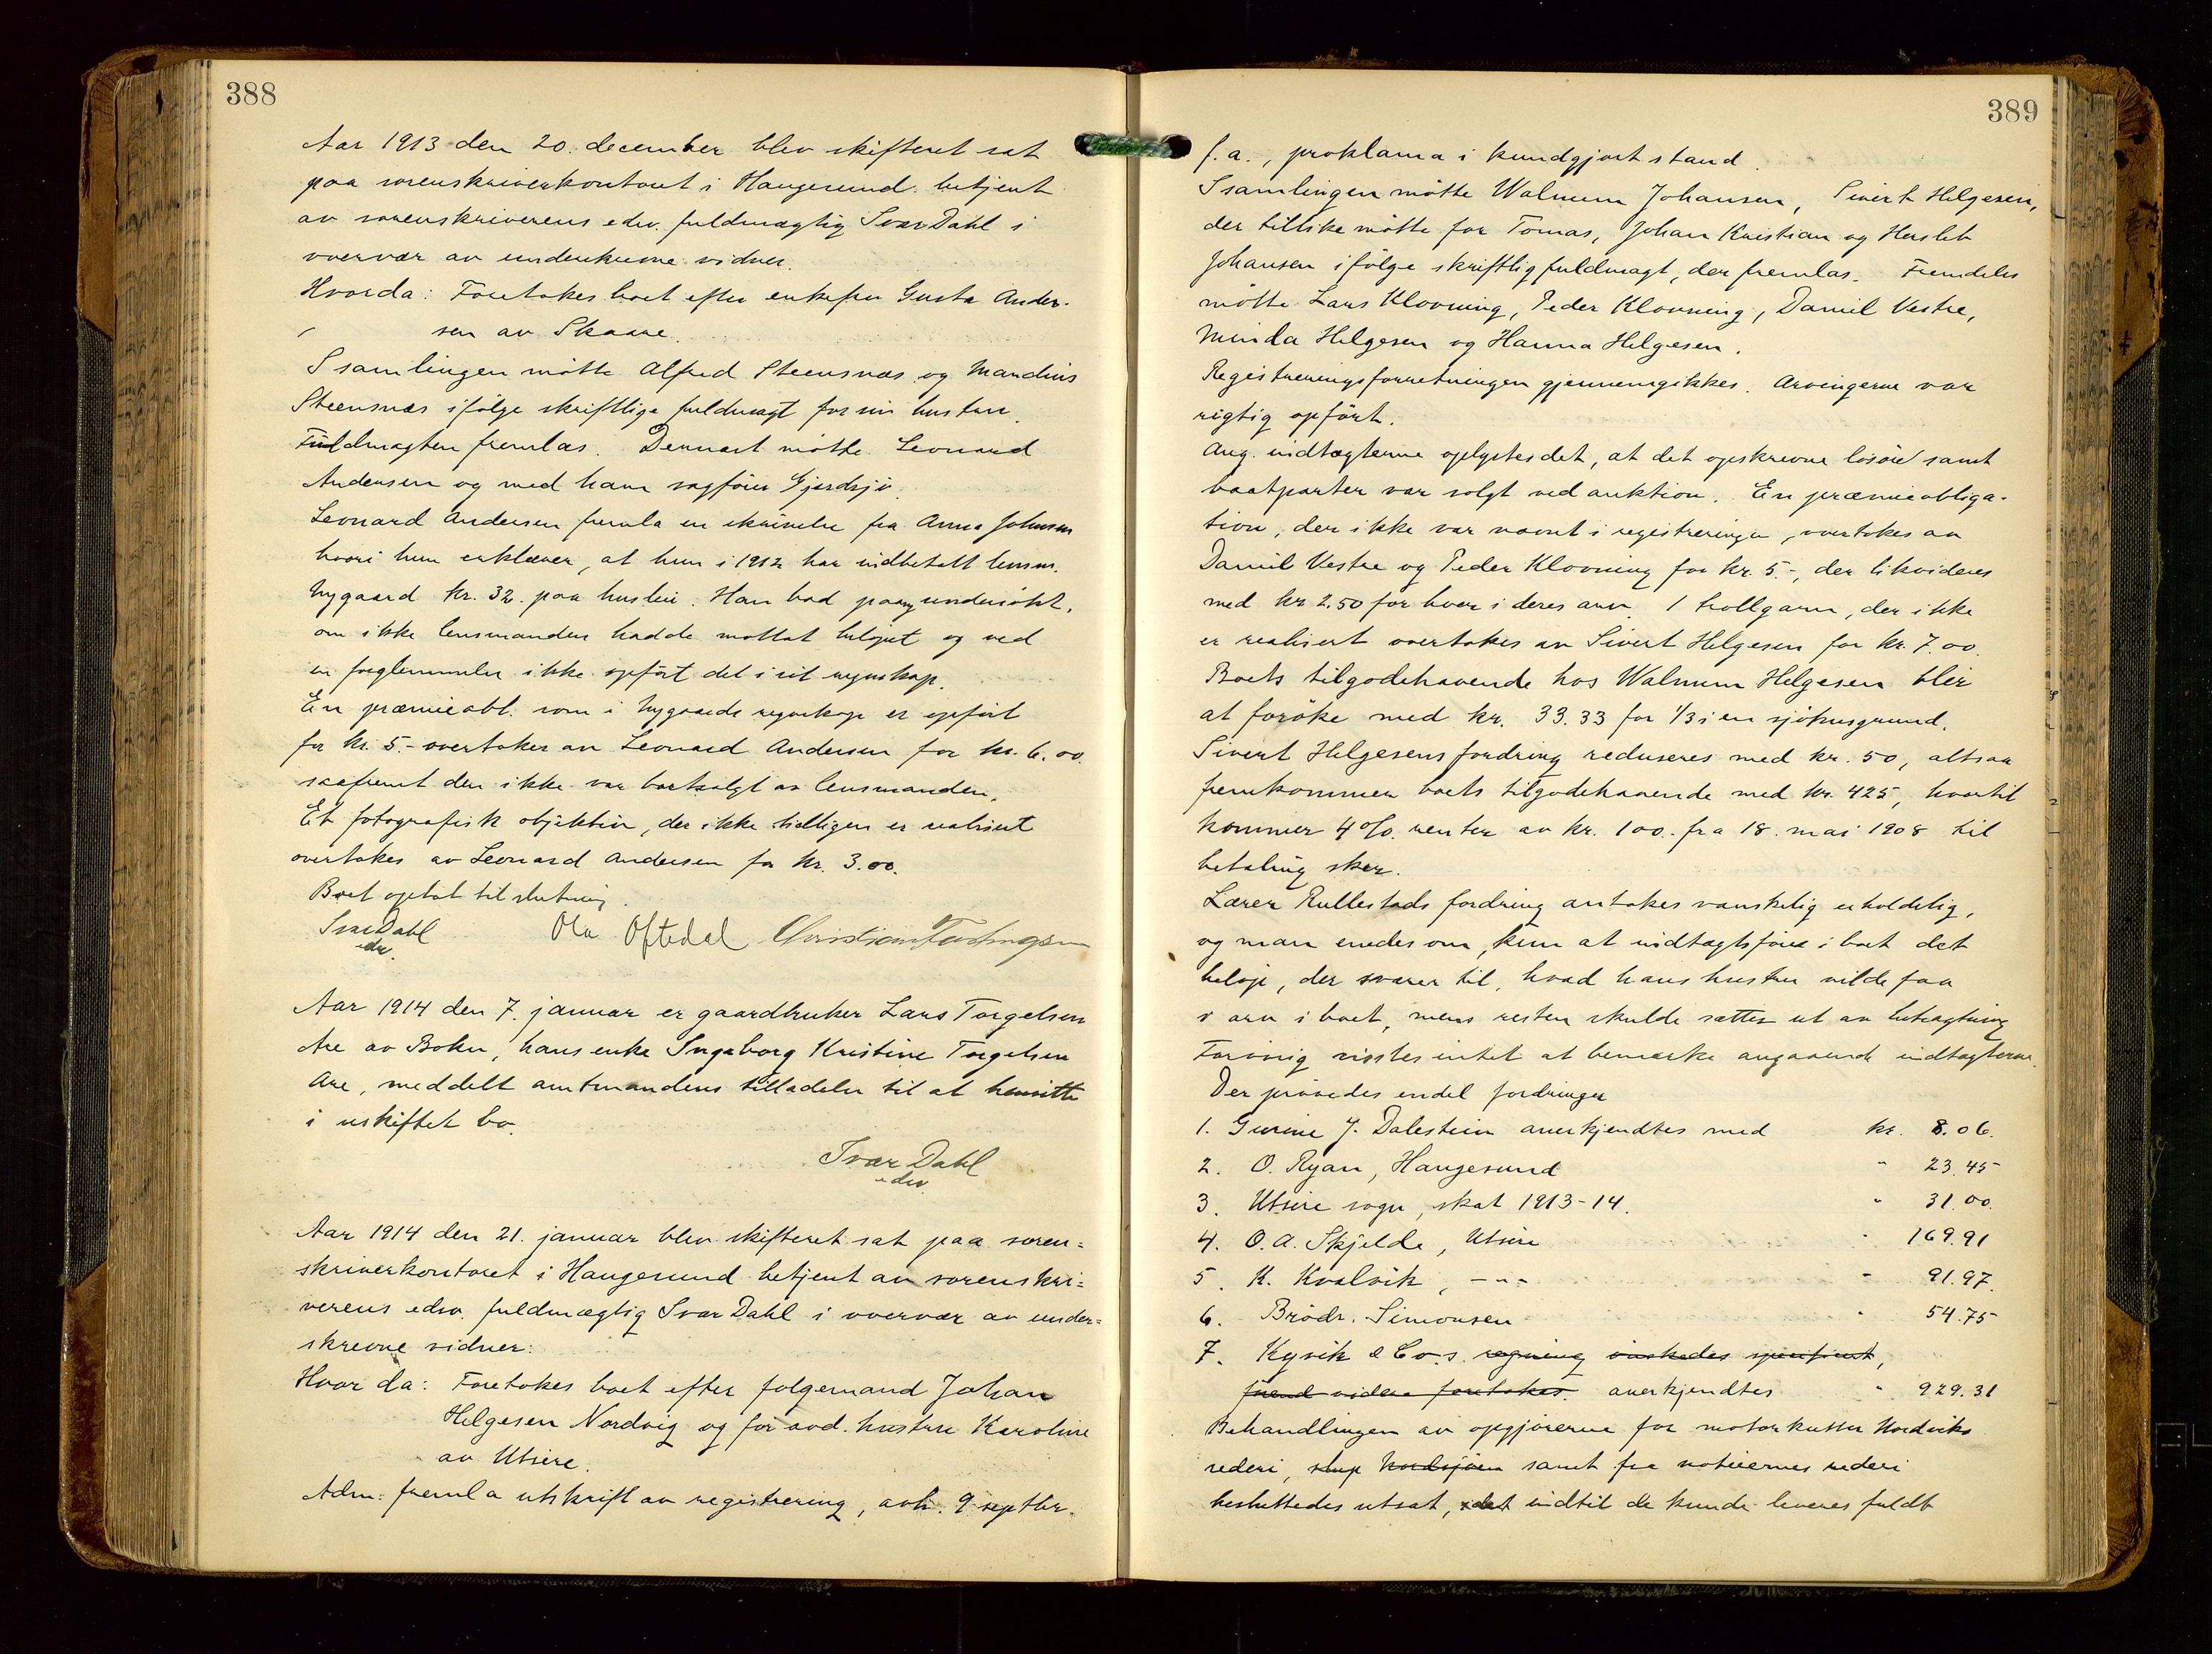 388
Aar 1913 den 20. december blev skifteret sat
paa sorenskriverkontoret i Haugesund betjent
av sorenskriverens edsv. fuldmægtig Ivar Dahl i
overvær av underskrevne vidner.
Hvorda: Foretokes boet efter enkefru Gusta Ander-
sen av Skaare.
I samlingen møtte Alfred Steensnæs og Mandius
Steensnæs ifølge skriftlige fuldmagt for sin hustru.
Fuldmagten fremlas. Dernæst møtte Leonard
Andersen og med ham sagfører Gjerdsjø.
Leonard Andersen fremla en skrivelse fra Anna Johnsen
hvori hun erklærer, at hun i 1912 har indbetalt lensm.
Nygaard kr. 32. paa husleie. Han bad paany undersøkt,
om ikke lensmanden hadde mottat beløpet og ved
en forglemmelse ikke opført det i sit regnskap.
En præmieobl. som i Nygaards regnskap er opført
for kr. 5.- overtokes av Leonard Andersen for kr. 6.00
saafremt den ikke var bortsolgt av lensmanden.
Et fotografisk objektiv, der ikke tidligere er realisert
overtokes av Leonard Andersen for kr. 3.00.
Boet optat til slutning.
Ivar Dahl Ola Oftedal Christian
edsv.
Aar 1914 den 7. januar er gaardbruker Lars Torgelsen
Are av Bokn, hans enke Ingeborg Kristine Torgelsen
Are, meddelt amtmandens tilladelse til at hensitte
i uskiftet bo.
Ivar Dahl
edsv
Aar 1914 den 21. januar blev skifteret sat paa soren=
skriverkontoret i Haugesund betjent av sorenskri=
verens edsv. fuldmægtig Ivar Dahl i overvær av under=
skrevne vidner:
Hvor da: Foretokes boet efter følgemand Johan
Helgesen Nordvig og før avd. hustru Karoline
av Utsire.
Adm: fremla utskrift av registrering, avh. 9 septbr.
389
f.a., proklama i kundgjort stand.
I samlingen møtte Walnum Johansen, Sivert Helgesen,
der tillike møtte for Tomas, Johan Kristian og Herleb
Johansen ifølge skriftlig fuldmagt, der fremlas. Fremdeles
møtte Lars Klovning, Peder Klovning, Daniel Vestre,
Minda Helgesen og Hanna Helgesen.
Registreringsforretningen gjennemgikkes. Arvingerne var
rigtig opført.
Ang. indtægterne oplystes det, at det opskrevne løsøre samt
baatparter var solgt ved auktion. En præmieobliga-
tion, der ikke var nævnt i registreringen, overtokes av
Daniel Vestre og Peder Klovning for kr. 5.-, der likvideres
med kr 2.50 for hver i deres arv. 1 trollgarn, der ikke
er realisert overtokes av Sivert Helgesen for kr. 7.00.
Boets tilgodehavende hos Walnum Helgesen blir
at forøke med kr. 33.33 for 1/3 i en sjøhusgrund.
Sivert Helgesens fordring reduseres med kr. 50, altsaa
fremkommer boets tilgodehavende med kr. 425, hvortil
kommer 4 o/o. renter av kr. 100. fra 18. mai 1908 til
betaling sker.
Lærer Rullestads fordring antokes vanskelig erholdelig,
og man enedes om, kun at indtægtsføre i boet det
beløp, der svarer til, hvad hans hustru vilde faa
i arv i boet, mens resten skulde sættes ut av betragtning
Forøvrig visstes intet at bemærke angaaende indtægterne.
Der prøvedes endel fordringer
1. Gurine J. Dalestein anerkjendtes med kr. 8.06.
2. O. Ryan, Haugesund " 23.45
3. Utsire sogn, skat 1913-14. " 31.00.
4. O.A. Skjelde, Utsire " 169.91
5. K. Kvalvik, -"- " 91.97.
6. Brødr. Simonsen " 54.75
7. Kyvik & Co.s regning ønskedes specificert,
førend videre foretokes anerkjendtes " 929.31
Behandlingen av opgjørerne for motorkutter Nordviks
rederi, slup Nordsjøen samt fra noteiernes rederi
besluttedes utsat, indtil de kunde leveres fuldt